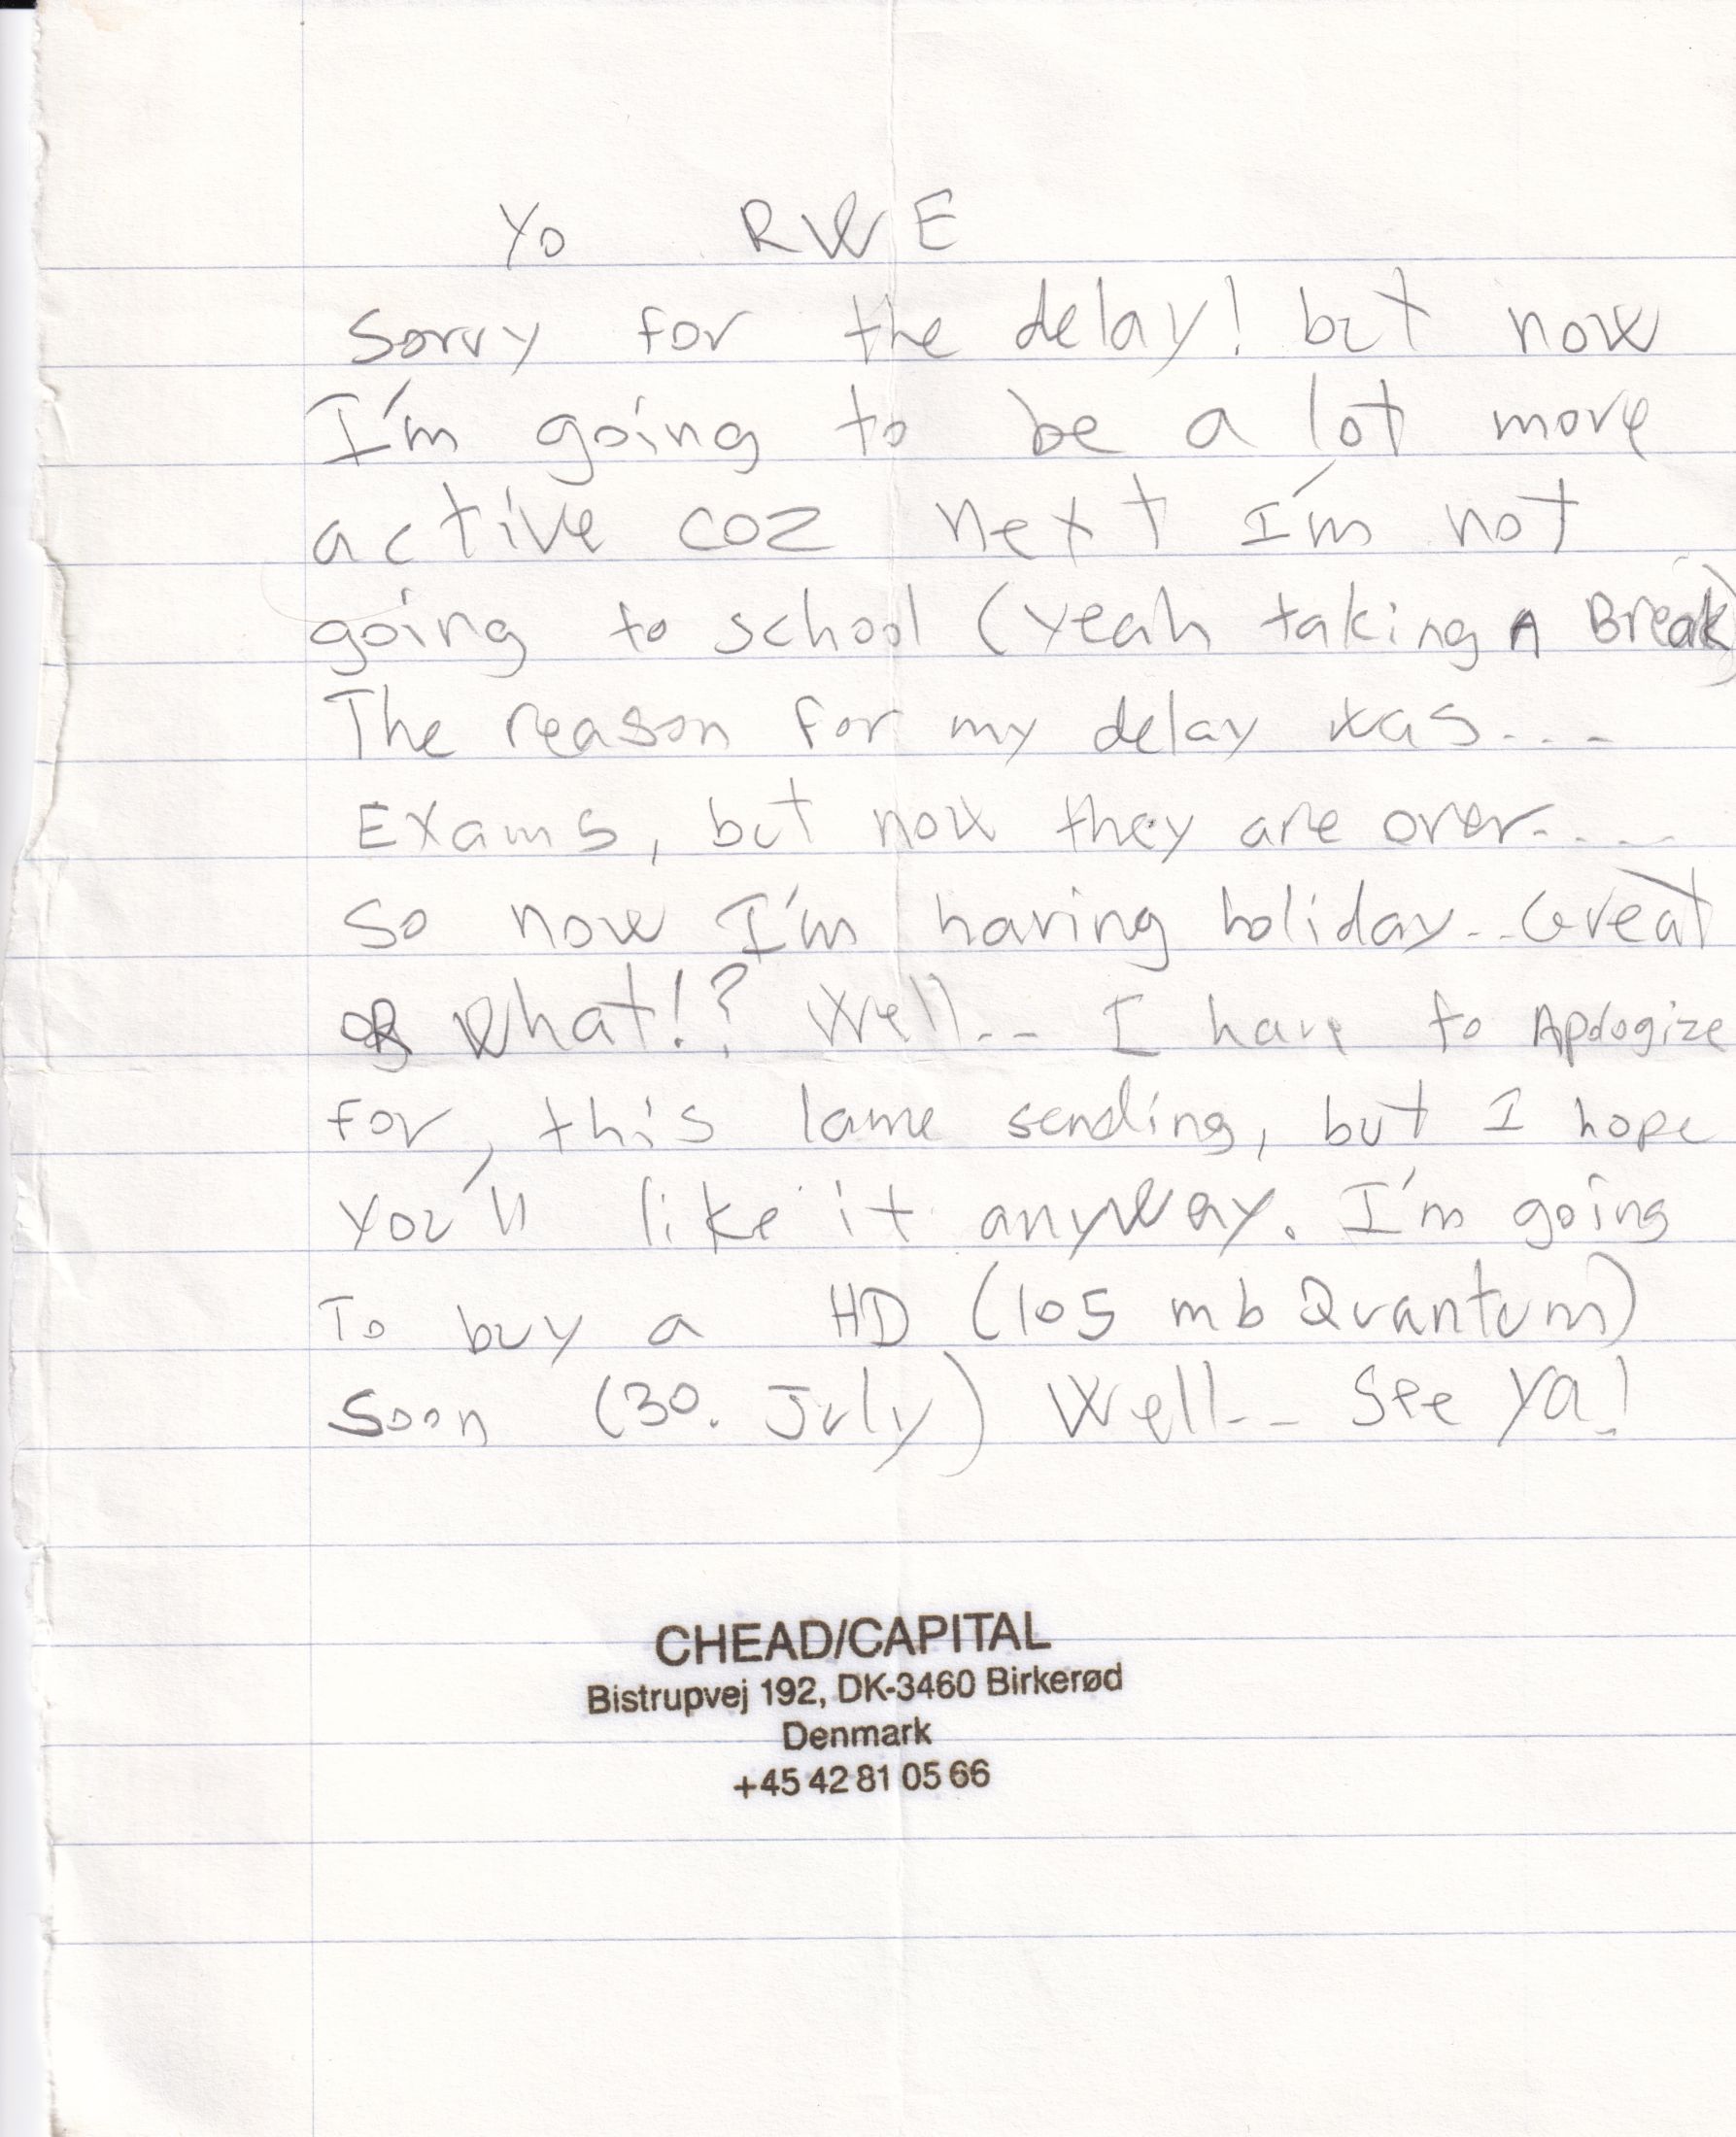 Yo RWE
Sorry for the delay! but now
I'm going to be a lot more
active coz next I'm not
going to school (yeah taking A Break)
The reason for my delay was....
Exams, but now they are over.....
So now I'm having holiday... Great
or what!? Well... I have to Apologize
for, this lame sending, but I hope
you'll like it anyway. I'm going
To buy a HD (105 mb Quantum)
Soon (30. July) Well... See Ya!
CHEAD/CAPITAL
Bistrupvej 192, DK-3460 Birkerød
Denmark
+45 42 81 05 66